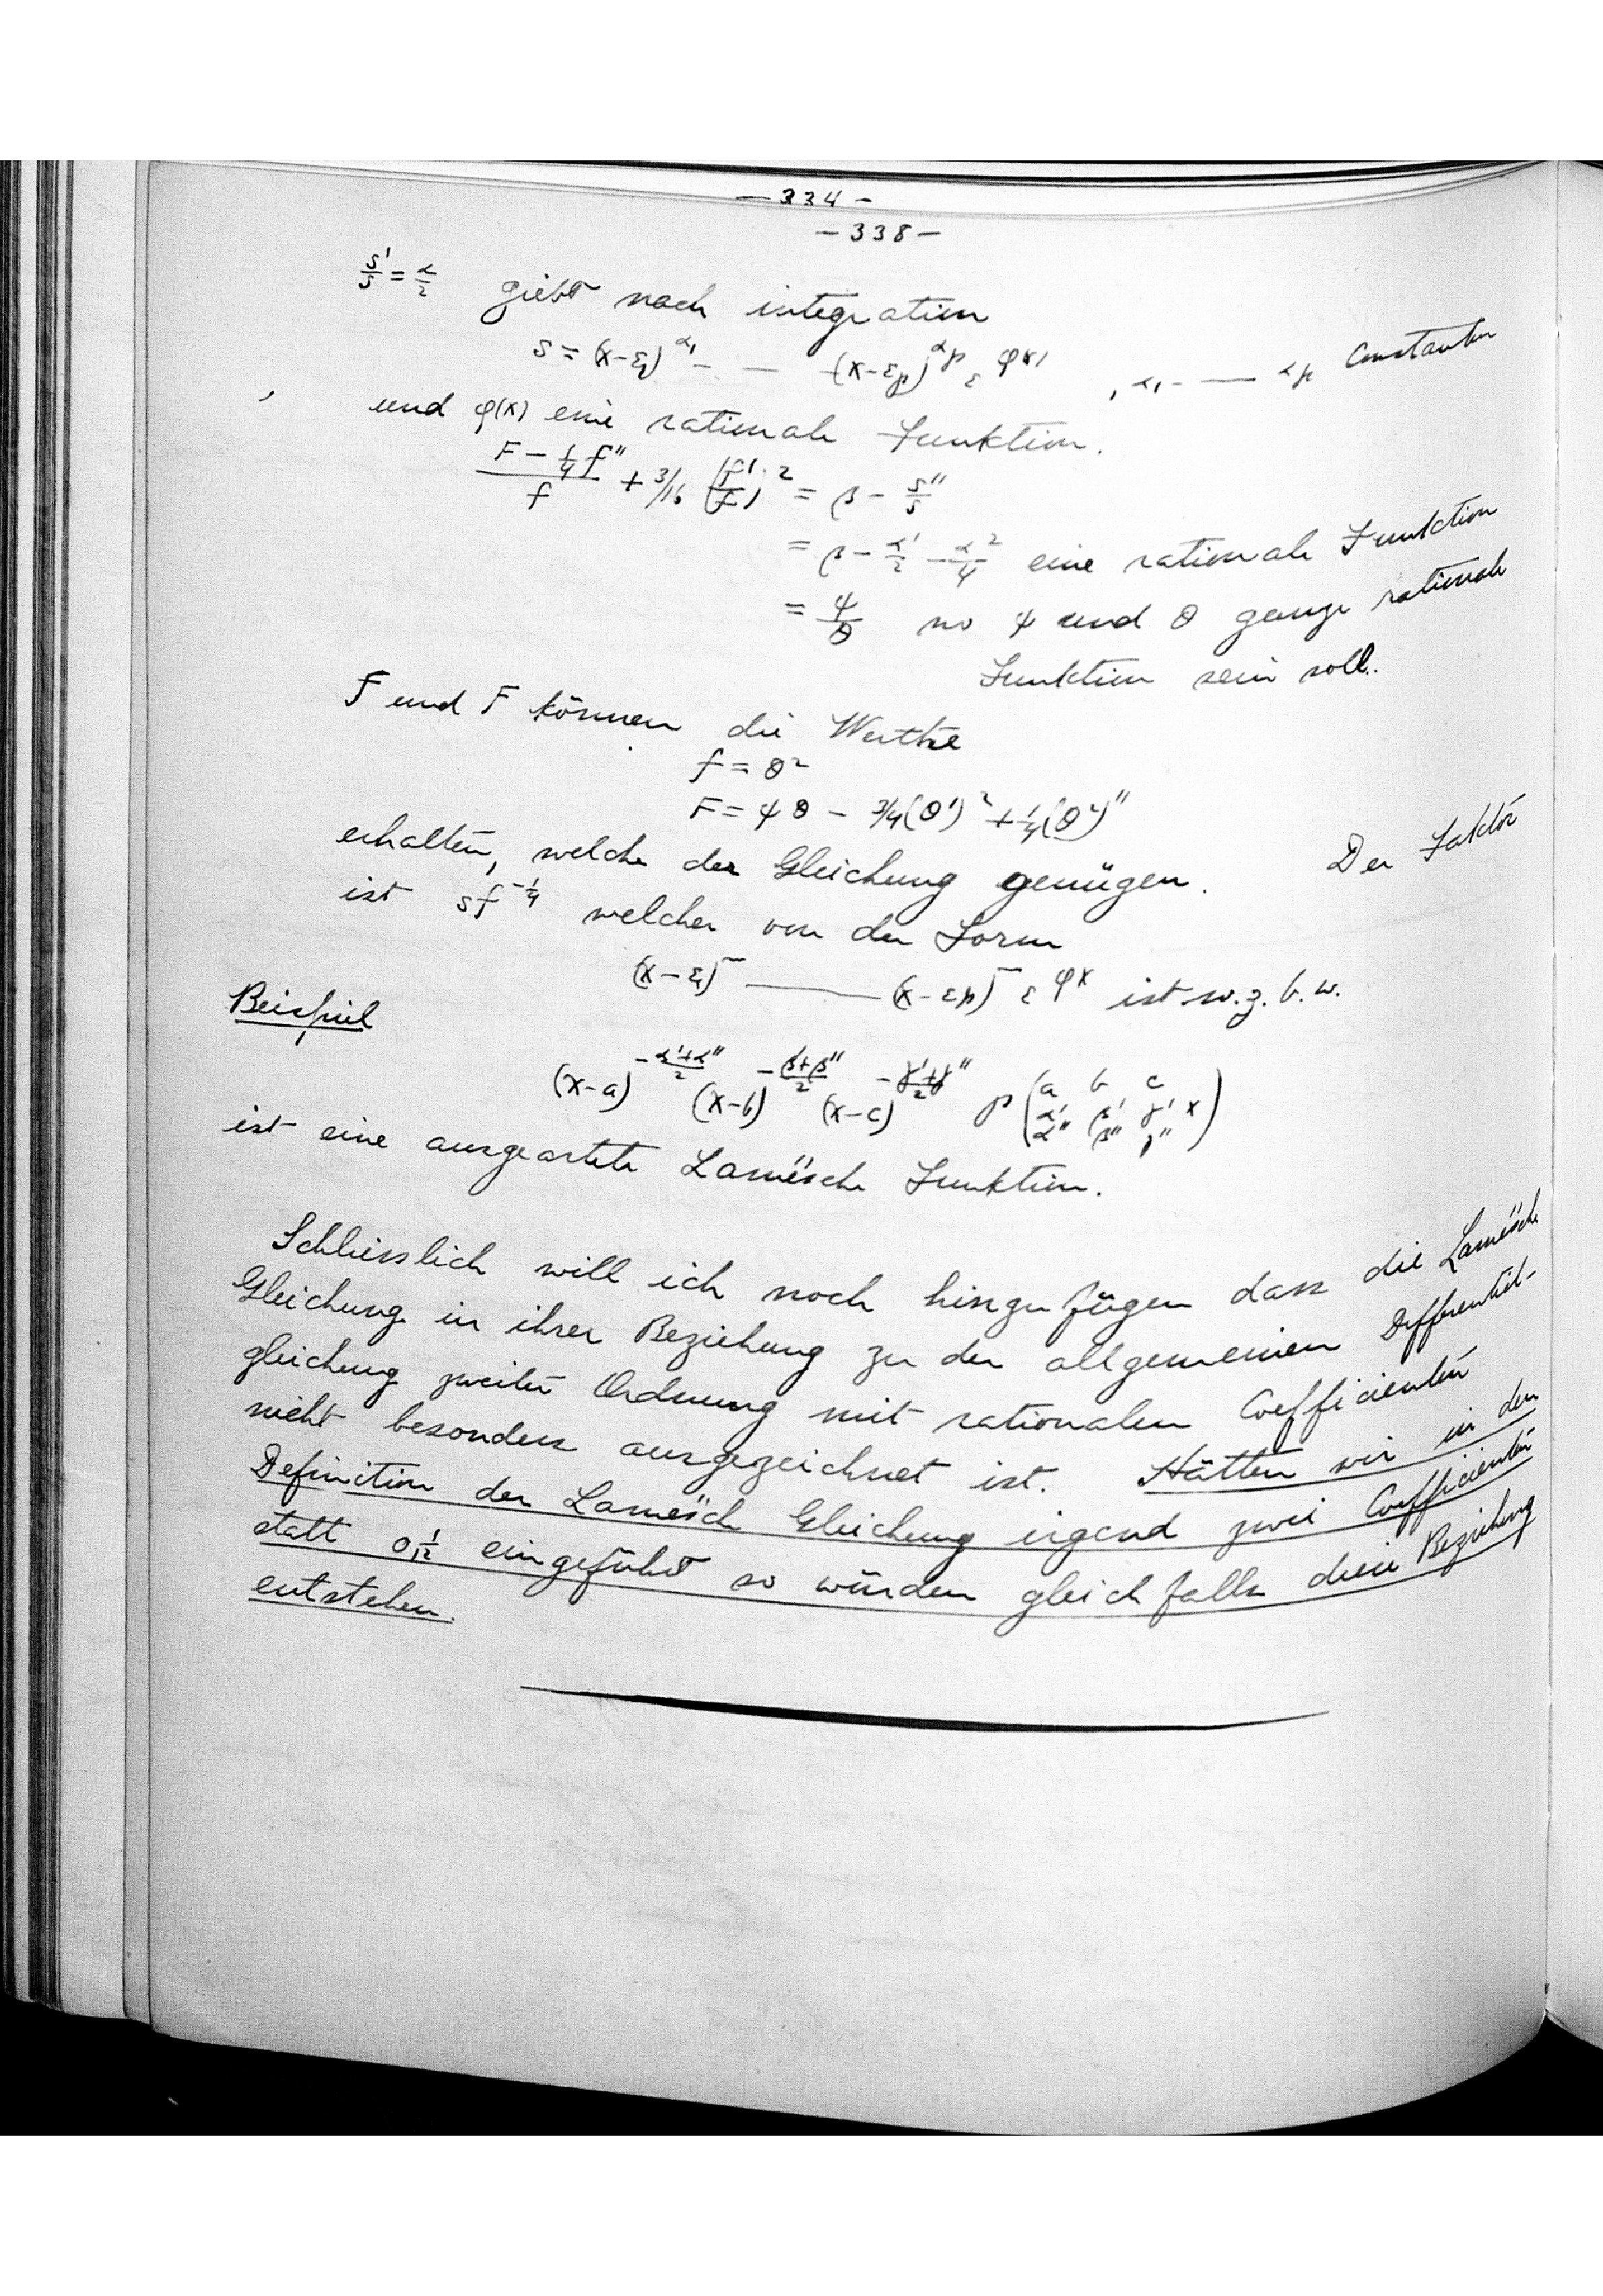 — 334 —
— 338 —
s'/s = α/2 giebt nach integration
s = (x-ε₁)^α₁ - — (x-εp)^αp ε^φ(x) , α₁ - — αp Constanten
und φ(x) eine rationale Funktion.
(F - 1/4 f'')/f + 3/16 (f'/f)² = β - s''/s
= β - α'/2 - α²/4 eine rationale Funktion
= ψ/θ wo ψ und θ ganze rationale
Funktion sein soll.
f und F können die Werthe
f = θ²
F = ψθ - 3/4(θ')² + 1/4(θ²)''
erhalten, welche der Gleichung genügen. Der Faktor
ist sf^-1/4 welcher von der Form
(x-ε₁)^— ——— (x-εp)^— ε^φx ist w.z.b.w.
Beispiel
(x-a)^-(α'+α'')/2 (x-b)^-(β'+β'')/2 (x-c)^-(γ'+γ'')/2 p(a b c
α' β' γ' x
α'' β'' γ'')
ist eine ausgeartete Lamésche Funktion.
Schliesslich will ich noch hinzufügen dass die Lamésche
Gleichung in ihrer Beziehung zu der allgemeinen Differential-
gleichung zweiter Ordnung mit rationalen Coefficienten
nicht besonders ausgezeichnet ist. Hätten wir in den
Definition der Lamésch Gleichung irgend zwei Coefficienten
statt 0,1/2 eingeführt so würden gleichfalls diese Beziehung
entstehen.